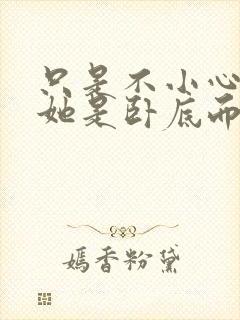 只是不小心
她是卧底而
嫣香粉黛